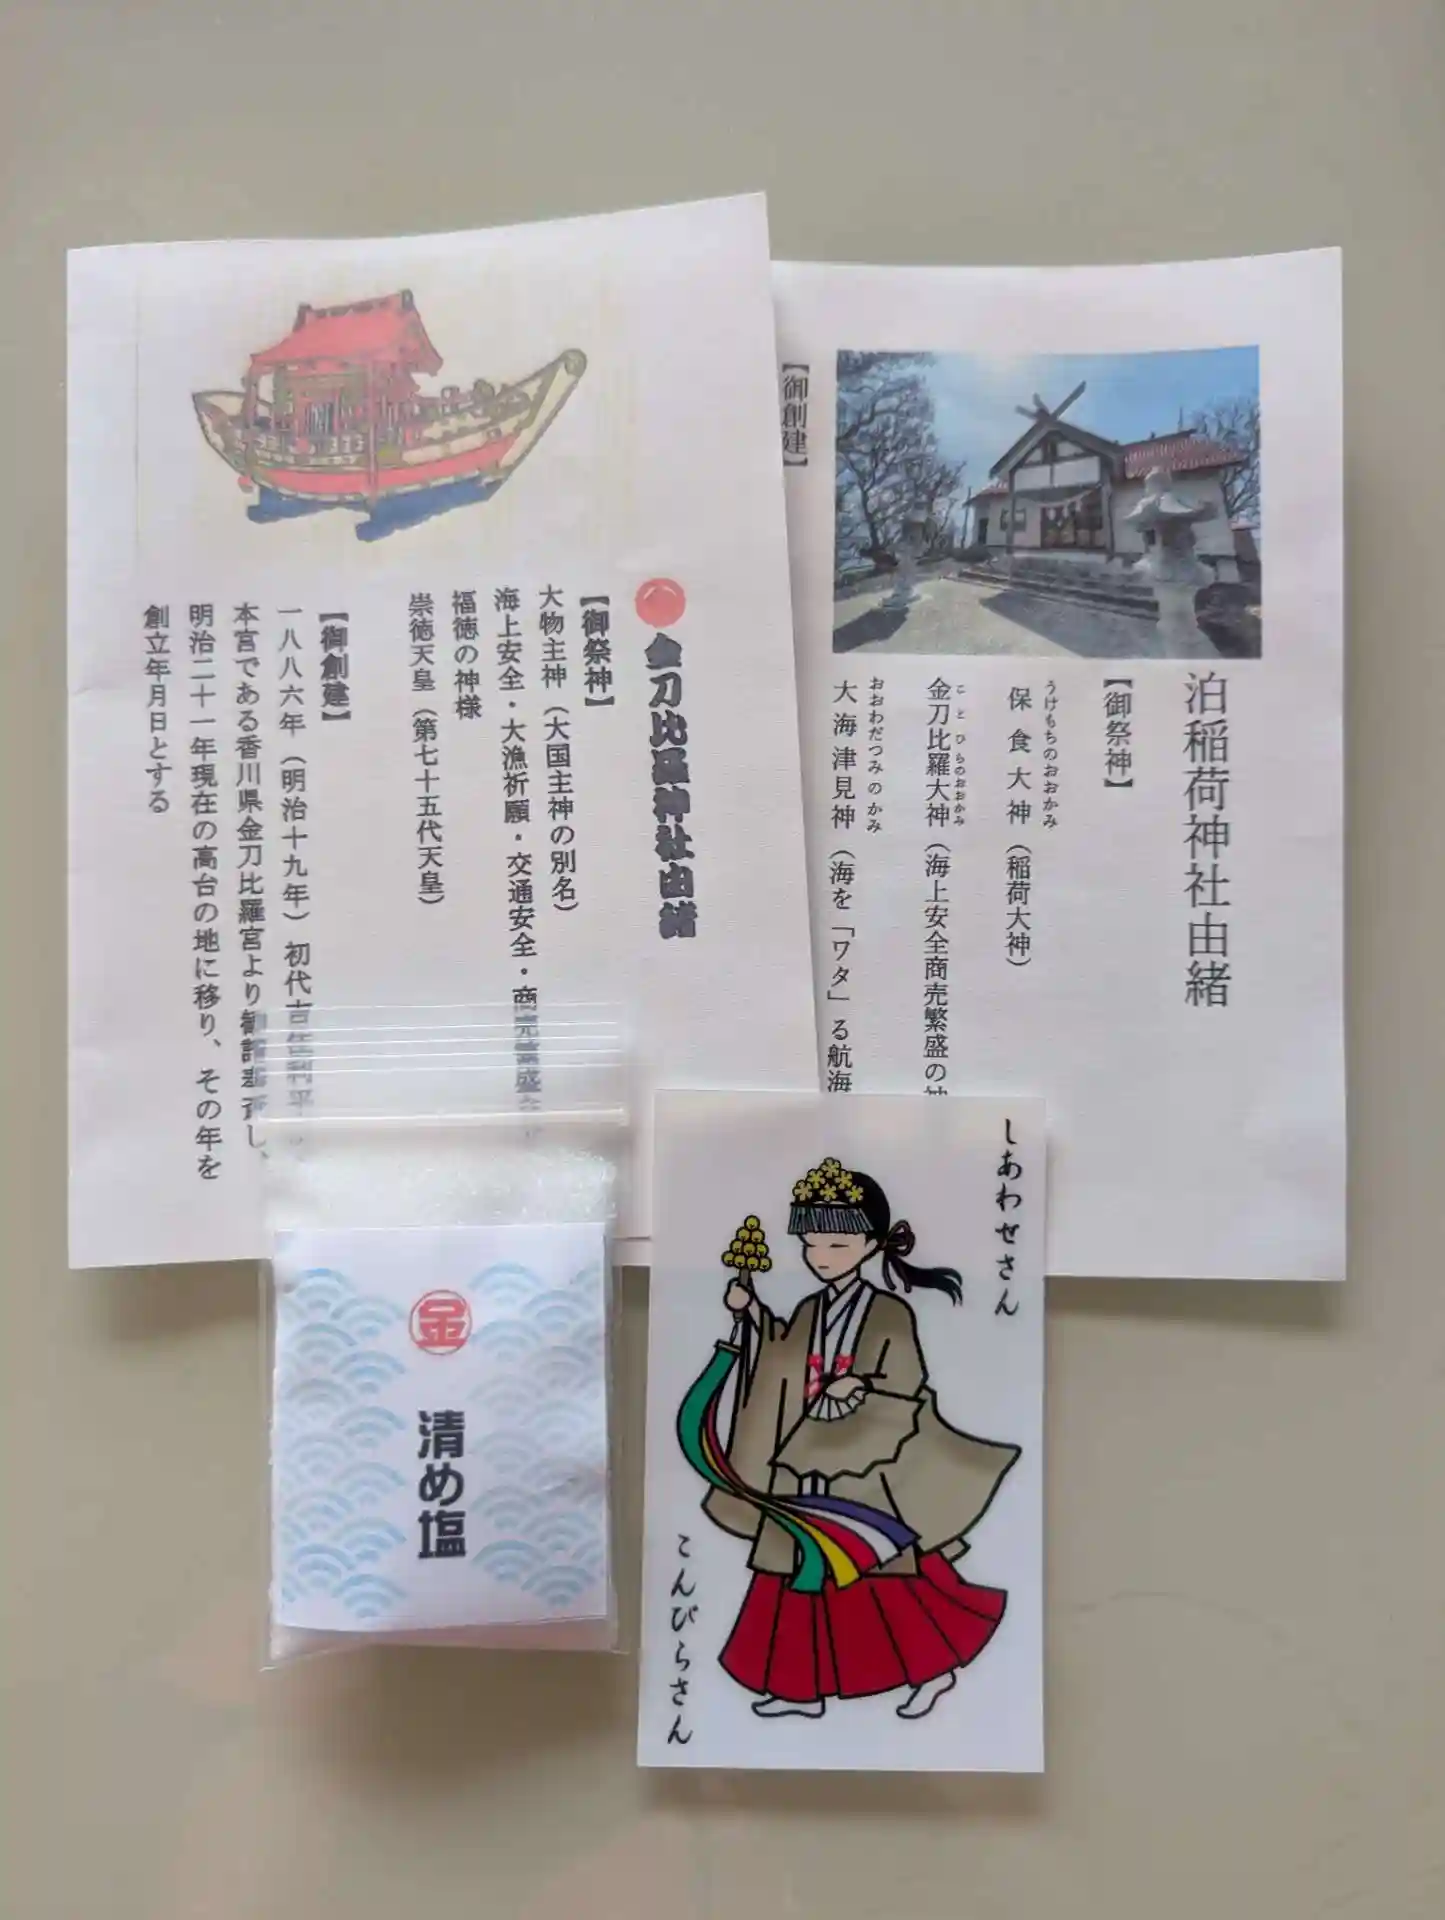 金刀比羅神社由緒
【御祭神】
大物主神（大国主神の別名）
海上安全・大漁祈願・交通安全・商売繁盛
福徳の神様
崇徳天皇（第七十五代天皇）
【御創建】
一八八六年（明治十九年）初代吉住利平
本宮である香川県金刀比羅宮より
明治二十一年現在の高台の地に移り、その年を
創立年月日とする
泊稲荷神社由緒
【御祭神】
うけもちのおおかみ
保食大神（稲荷大神）
ことひらのおおかみ
金刀比羅大神（海上安全商売繁盛の神
おおわだつみのかみ
大海津見神（海を「ワタ」る航海
【御創建】
金
清め塩
しあわせさん
こんぴらさん